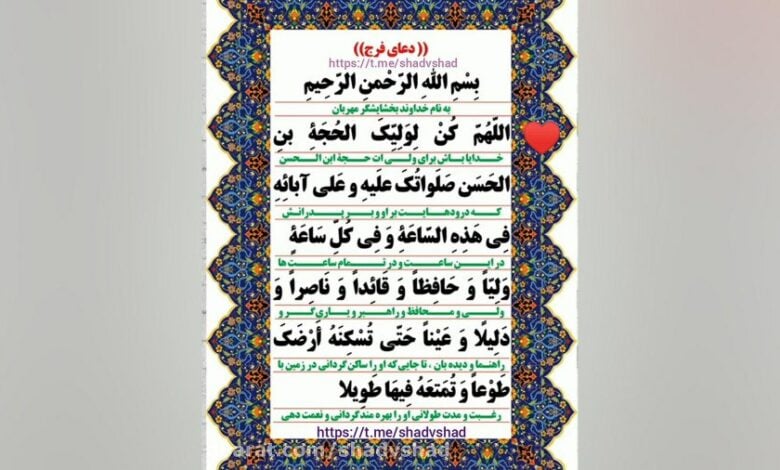 (( دعای فرج))
https://t.me/shadvshad
بِسْمِ اللهِ الرّحْمنِ الرّحِیمِ
به نام خداوند بخشایشگر مهربان
اللّهُمّ کُنْ لِوَلِیِّکَ الحُجَةِ بنِ
خدایا باش برای ولی ات حجة ابن الحسن
الحَسَن صَلَواتُکَ عَلَیهِ و عَلی آبائِهِ
که درودهایت بر او و بر پدرانش
فِی هَذِهِ السّاعَةِ وَ فِی کُلِّ سَاعَةٍ
در این ساعت و در تمام ساعت ها
وَلِیّاً وَ حَافِظاً وَ قَائِداً وَ نَاصِراً وَ
ولی و محافظ و راهبر و یاری گر و
دَلِیلًا وَ عَیْناً حَتّی تُسْکِنَهُ أرْضَکَ
راهنما و دیده بان ، تا جایی که او را ساکن گردانی در زمین با
طَوْعاً وَ تُمَتعَهُ فِیهَا طَوِیلا
رغبت و مدت طولانی او را بهره مند گردانی و نعمت دهی
https://t.me/shadvshad
arat.com/shadvshad